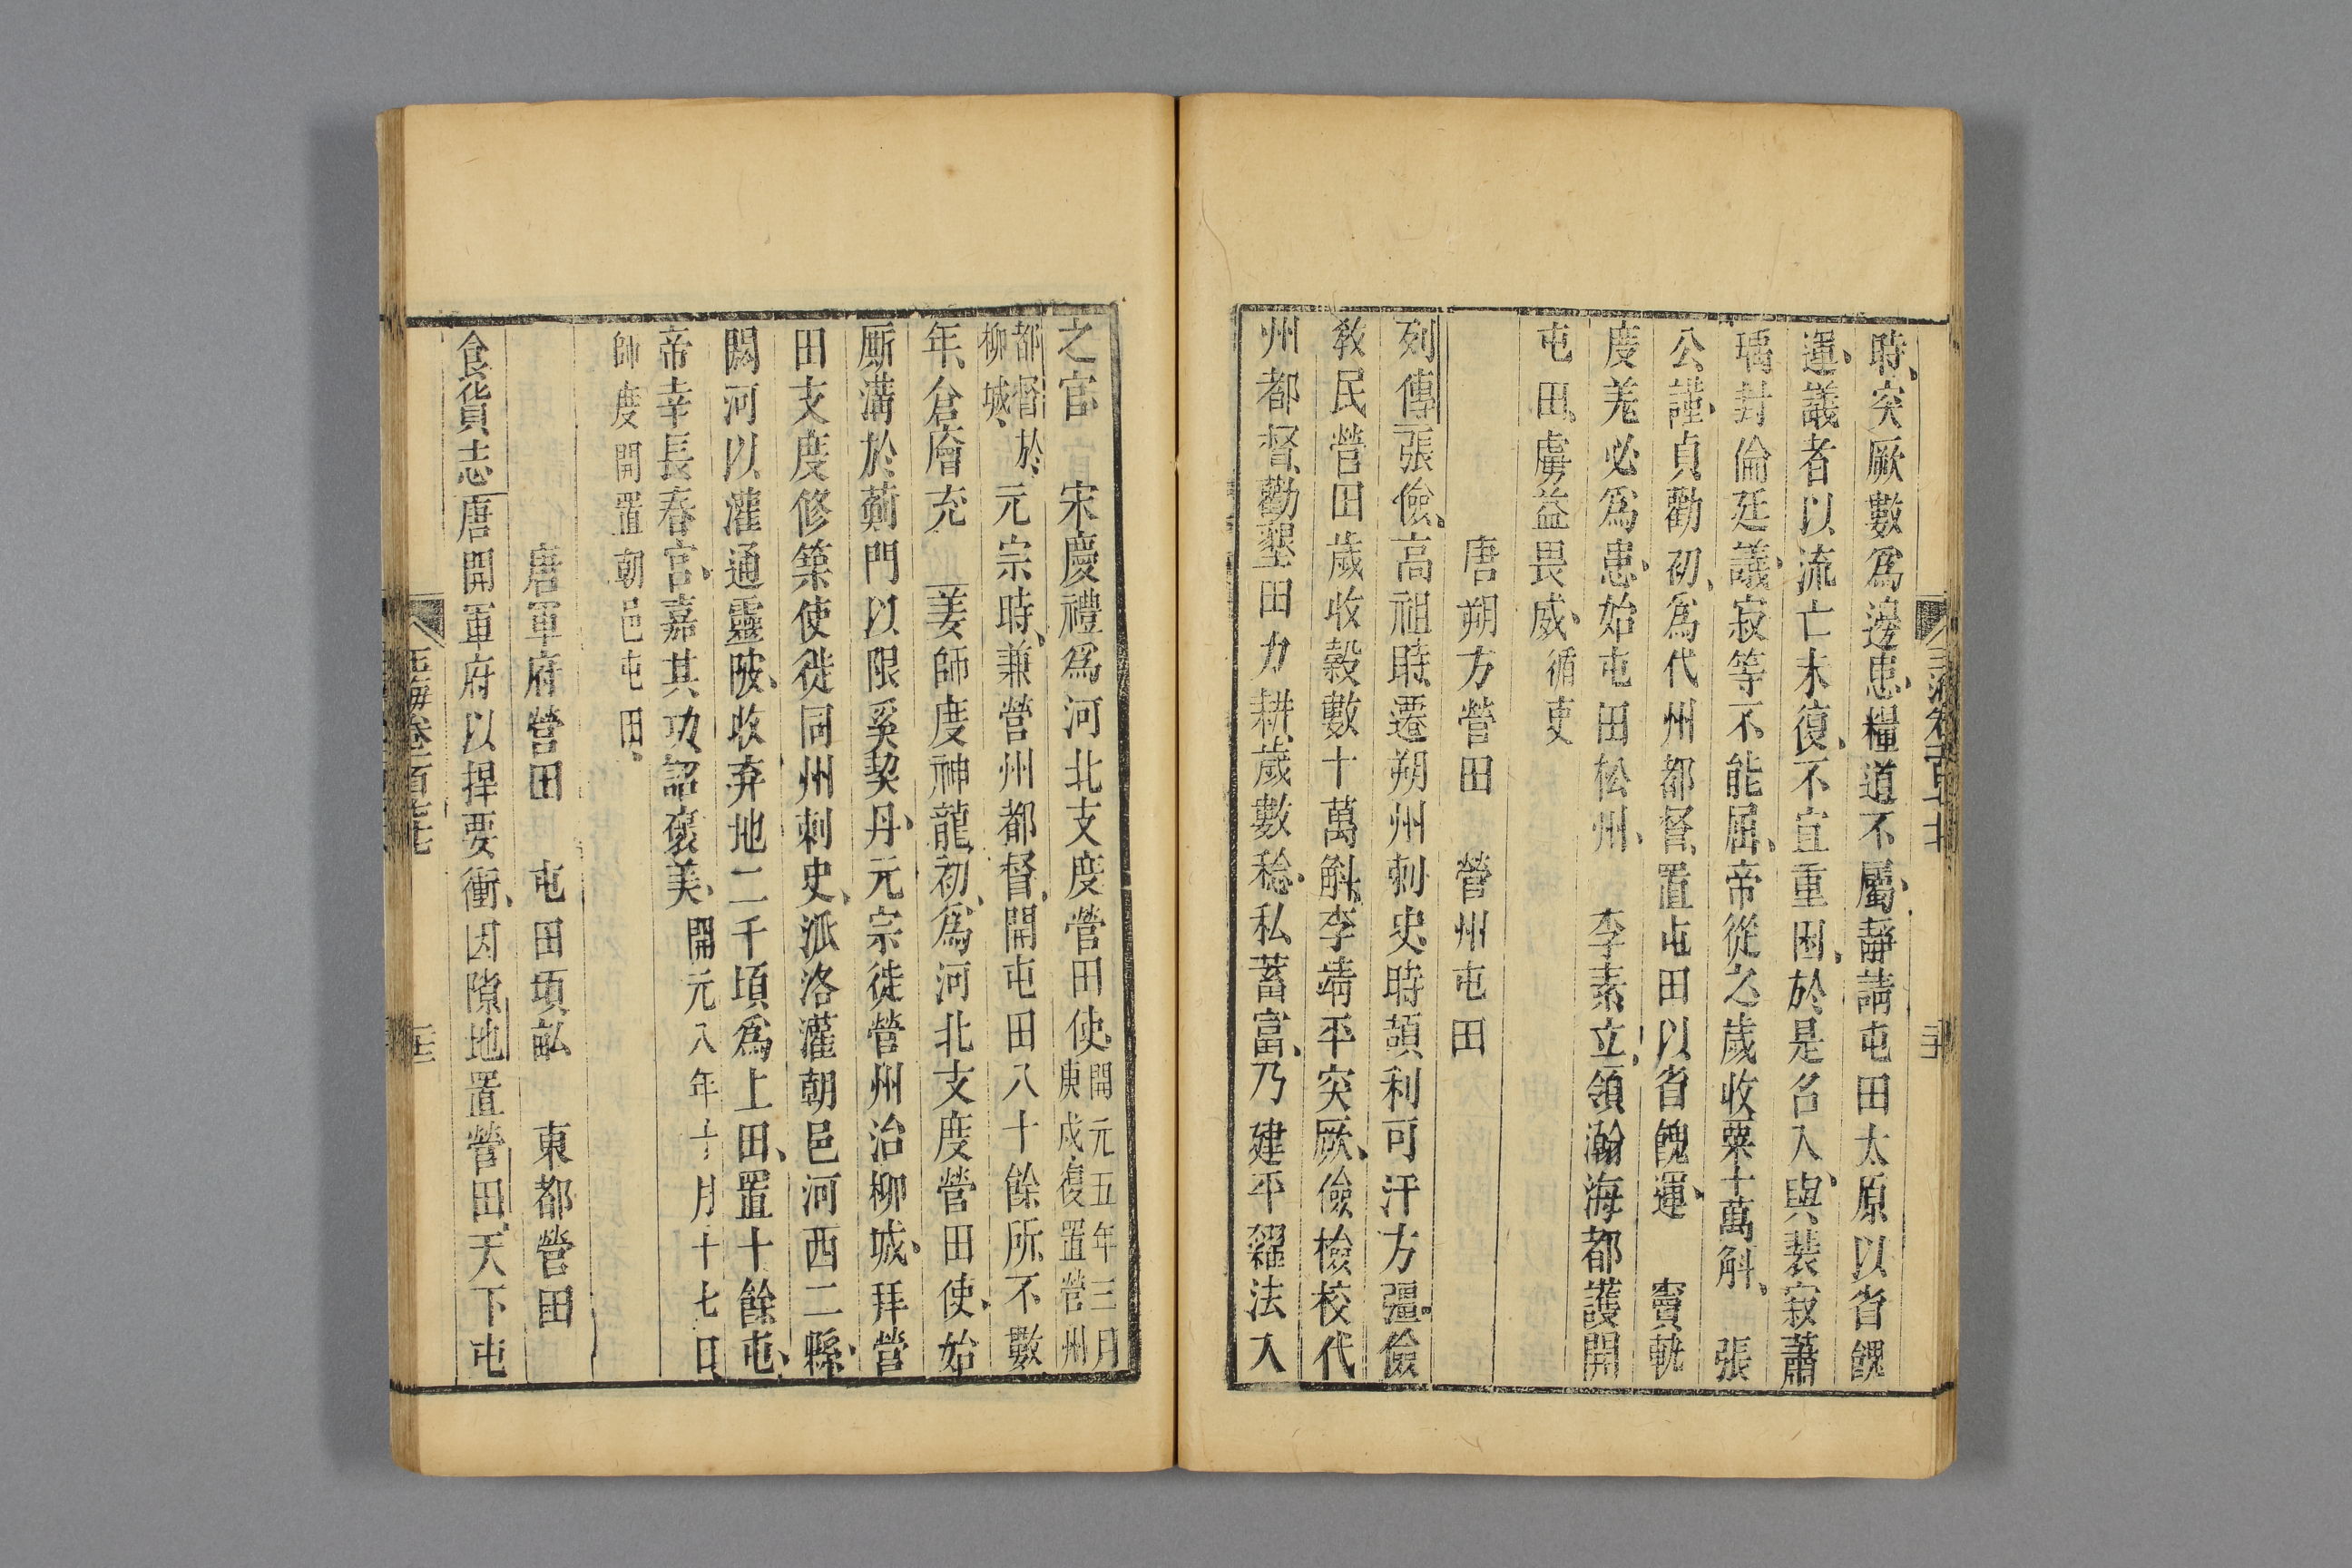 時突厥數爲邊患糧道不屬靜請屯田太原以省餽
運議者以流亡未復不宜重困於是名入與裴寂蕭
瑀封倫廷議寂等不能屈帝從之歲收粟十萬斛 張
公謹貞觀初爲代州都督置屯田以省餽運 竇軌
度羌必爲患始屯田松州 李素立領瀚海都護開
屯田虜益畏威循吏
唐朔方營田 營州屯田
列傳張儉高祖時遷朔州刺史時頡利可汗方彊儉
敎民營田歲收穀數十萬斛李靖平突厥儉檢校代
州都督勸墾田力耕歲數稔私蓄富乃建平糴法入
之官 宋慶禮爲河北支度營田使開元五年三月
庚戍復置營州
都督於
柳城元宗時兼營州都督開屯田八十餘所不數
年倉廥充 姜師度神龍初爲河北支度營田使始
厮溝於薊門以限奚契丹元宗徙營州治柳城拜營
田支度修築使徙同州刺史派洛灌朝邑河西二縣
閼河以灌通靈陂收弃地二千頃爲上田置十餘屯
帝幸長春宫嘉其功詔褒美開元八年十月十七日
師度開置朝邑屯田
唐軍府營田 屯田頃畝 東都營田
食貨志唐開軍府以捍要衝因隙地置營田天下屯
玉海卷一百七十七